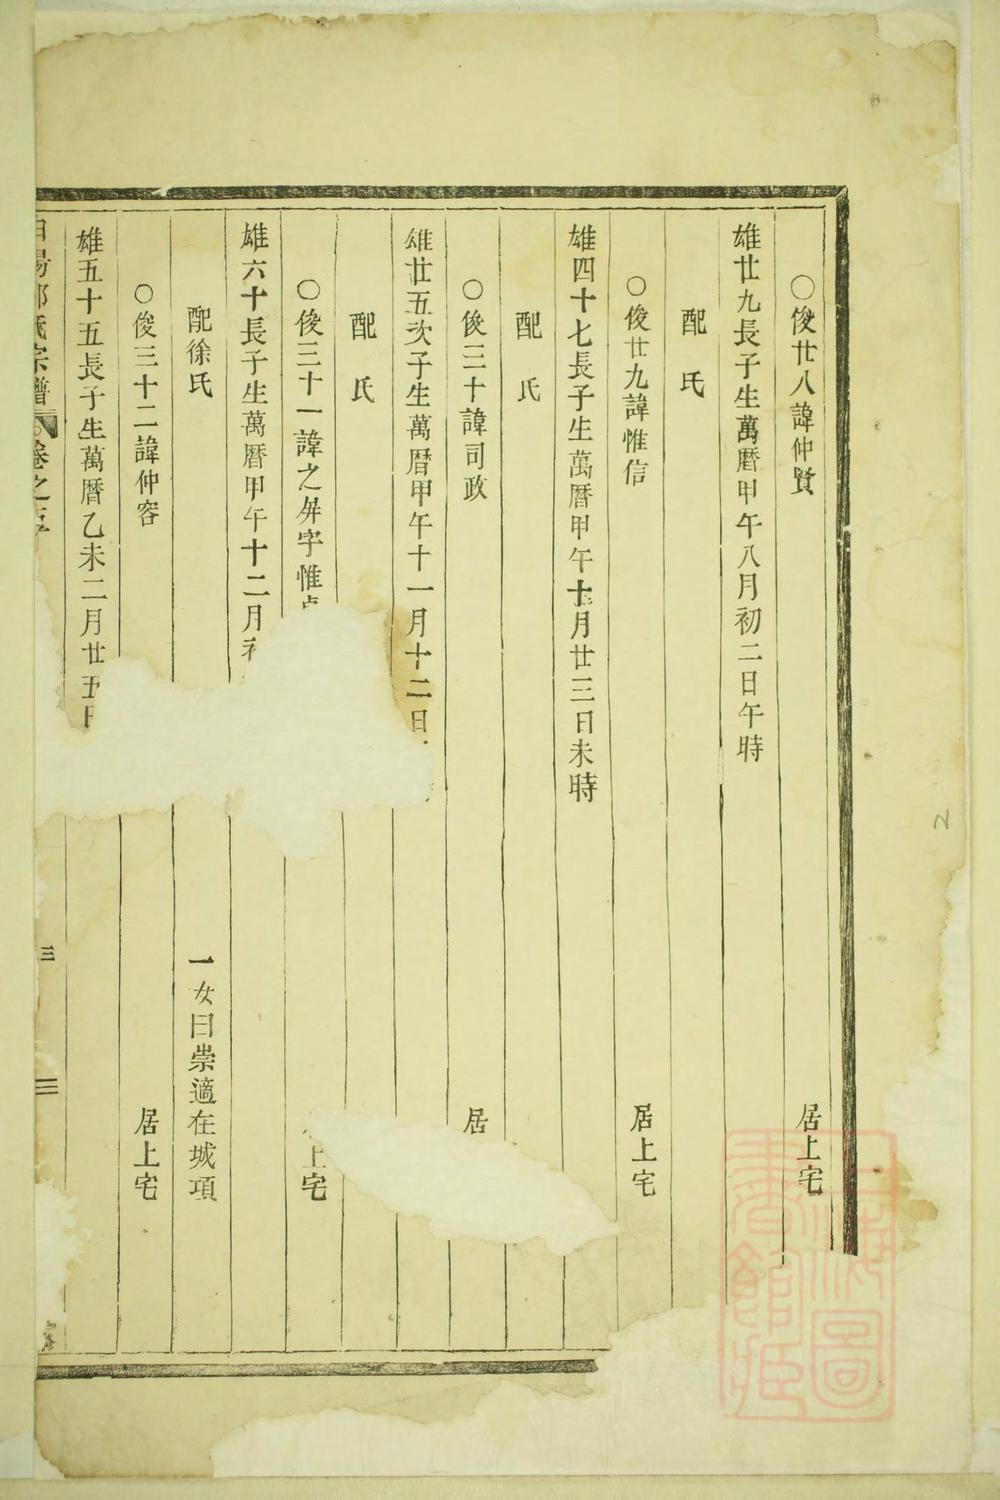 ○俊廿八諱仲賢 居上宅
雄廿九長子生萬曆甲午八月初二日午時
配 氏
○俊廿九諱惟信 居上宅
雄四十七長子生萬曆甲午十月廿三日未時
配 氏
○俊三十諱司政 居
雄廿五次子生萬曆甲午十一月十二日
配 氏
○俊三十一諱之屏字惟 上宅
雄六十長子生萬曆甲午十二月
配徐氏 一女曰崇適在城項
○俊三十二諱仲容 居上宅
雄五十五長子生萬曆乙未二月廿五日
氏宗譜 卷之 三
上海圖書館藏
2